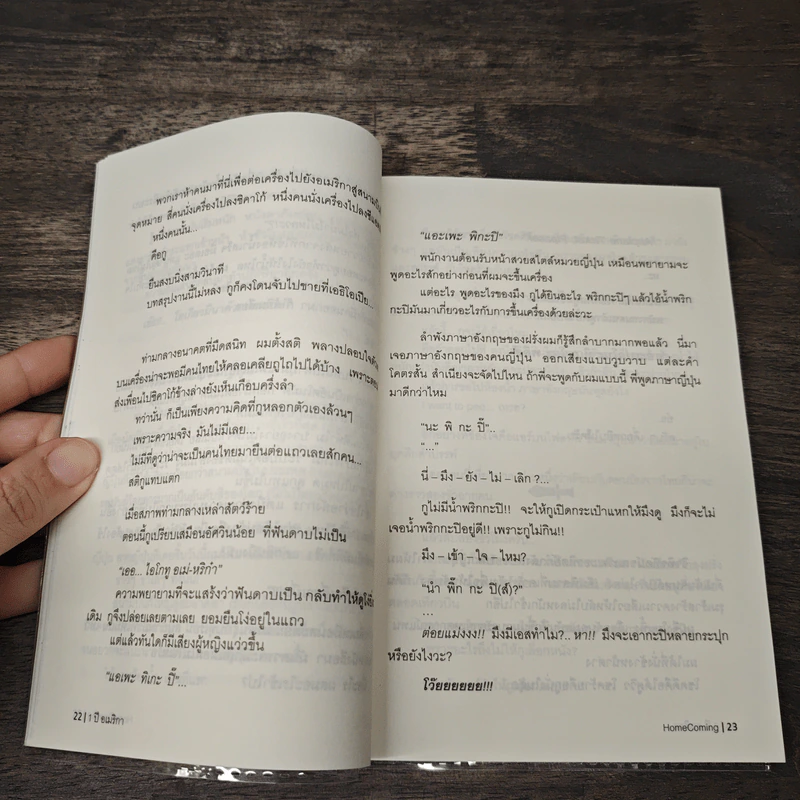 พวกเราห้าคนมาที่นี่เพื่อต่อเครื่องไปยังอเมริกาสู่สนามบิน
จุดหมาย สี่คนนั่งเครื่องไปลงชิคาโก้ หนึ่งคนนั่งเครื่องไปลง
หนึ่งคนนั้น...
คือกู
ยืนสงบนิ่งสามวินาที
บทสรุปงานนี้ไม่หลง กูก็คงโดนจับไปขายที่เอธิโอเปีย...
ท่ามกลางอนาคตที่มืดสนิท ผมตั้งสติ พลางปลอบใจตัว
บนเครื่องน่าจะพอมีคนไทยให้คลอเคลียถูไถไปได้บ้าง เพราะตอน
ส่งเพื่อนไปชิคาโก้ข้างล่างยังเห็นเกือบครึ่งลำ
ทว่านั่น ก็เป็นเพียงความคิดที่กูหลอกตัวเองล้วนๆ
เพราะความจริง มันไม่มีเลย...
ไม่มีที่ดูว่าน่าจะเป็นคนไทยมายืนต่อแถวเลยสักคน...
สติกูแทบแตก
เมื่อสภาพท่ามกลางเหล่าสัตว์ร้าย
ตอนนี้กูเปรียบเสมือนอัศวินน้อย ที่ฟันดาบไม่เป็น
"เออ... ไอโกทู อเม-หริก๋า"
ความพยายามที่จะแสร้งว่าฟันดาบเป็น กลับทำให้ดูโง่
เดิม กูจึงปล่อยเลยตามเลย ยอมยืนโง่อยู่ในแถว
แต่แล้วทันใดก็มีเสียงผู้หญิงแว่วขึ้น
"แอเพะ ทิเกะ ปิ๊"...
22 | 1 ปี อเมริกา
"แอะเพะ พิกะปิ"
พนักงานต้อนรับหน้าสวยสไตล์หมวยญี่ปุ่น เหมือนพยายามจะ
พูดอะไรสักอย่างก่อนที่ผมจะขึ้นเครื่อง
แต่อะไร พูดอะไรของมึง กูได้ยินอะไร พริกกะปิๆ แล้วไอ้น้ำพริก
กะปิมันมาเกี่ยวอะไรกับการขึ้นเครื่องด้วยล่ะวะ
ลำพังภาษาอังกฤษของฝรั่งผมก็รู้สึกลำบากมากพอแล้ว นี่มา
เจอภาษาอังกฤษของคนญี่ปุ่น ออกเสียงแบบวูบวาบ แต่ละคำ
โคตรสั้น สำเนียงจะจัดไปไหน ถ้าพี่จะพูดกับผมแบบนี้ พี่พูดภาษาญี่ปุ่น
มาดีกว่าไหม
"นะ พิ กะ ปิ๊"..
"..."
นี่ – มึง – ยัง – ไม่ – เลิก ?...
กูไม่มีน้ำพริกกะปิ!! จะให้กูเปิดกระเป๋าแหกให้มึงดู มึงก็จะไม่
เจอน้ำพริกกะปิอยู่ดี!! เพราะกูไม่กิน!!
มึง – เข้า – ใจ – ไหม?
"นำ พิ๊ก กะ ปิ(ส์)?"
...
ต่อยแม่งงง!! มึงมีเอสทำไม?.. หา!! มึงจะเอากะปิหลายกระปุก
หรือยังไงวะ?
โว๊ยยยยยย!!!
HomeComing | 23